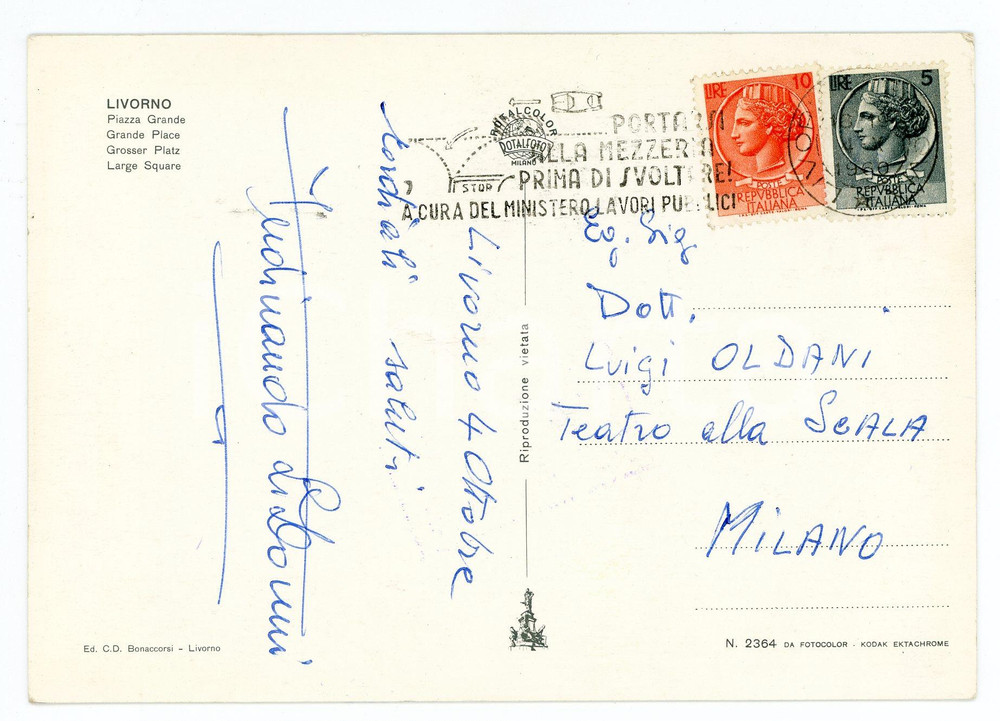 LIVORNO
Piazza Grande
Grande Place
Grosser Platz
Large Square
ROTALCOLOR
ROTALFOTO
MILANO
STOP
PORTA
ALLA MEZZERIA
PRIMA DI SVOLTARE!
A CURA DEL MINISTERO LAVORI PUBBLICI
LIRE 10
POSTE
REPVBBLICA
ITALIANA
LIRE 5
POSTE
REPVBBLICA
ITALIANA
Livorno 4 Ottobre
Cordiali saluti
Ferdinando
Eg. Sig
Dott.
Luigi OLDANI
Teatro alla SCALA
MILANO
Riproduzione vietata
Ed. C.D. Bonaccorsi - Livorno
N. 2364 DA FOTOCOLOR - KODAK EKTACHROME